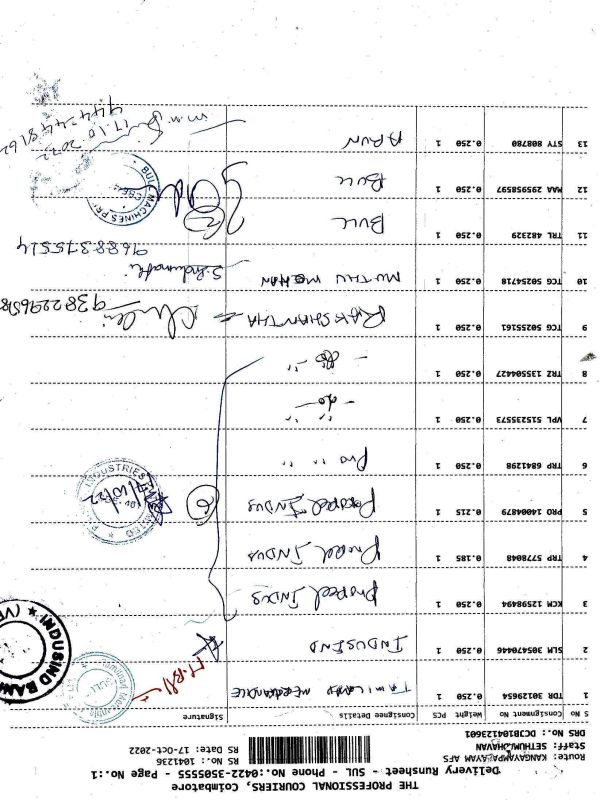 THE PROFESSIONAL COURIERS, Coimbatore
Delivery Runsheet - SUL - Phone No.:0422-3505555 - Page No.:1
Route: KANGAYAMPALAYAM AFS
Staff: SETHUMADHAVAN
DRS No.: DC1B104123601
RS No.: 1041236
RS Date: 17-Oct-2022
S No Consignment No Weight PCS Consignee Details Signature
1 TDR 30129654 0.250 1 TAMILNADU MERCANTILE
2 SLM 305470446 0.250 1 INDUSIND
3 KCM 12598494 0.250 1 Propel Indus
4 TRP 5778048 0.185 1 Propel Indus
5 PRO 14004879 0.215 1 Propel Indus 6
6 TRP 6841298 0.250 1 Pro " "
7 VPL 515235573 0.250 1 - do -
8 TRZ 135504427 0.250 1 - do -
9 TCG 50255161 0.250 1 RAKSHANTHA
10 TCG 50254718 0.250 1 MUTHU MOHAN S. Indumathi
9688375514
11 TRL 482329 0.250 1 BULL 2
12 MAA 295958597 0.250 1 BULL
13 STY 808780 0.250 1 ARUN
17.10.2022
9442448162
INDUSIND BANK
INDUSTRIES
BULL MACHINES
CBE